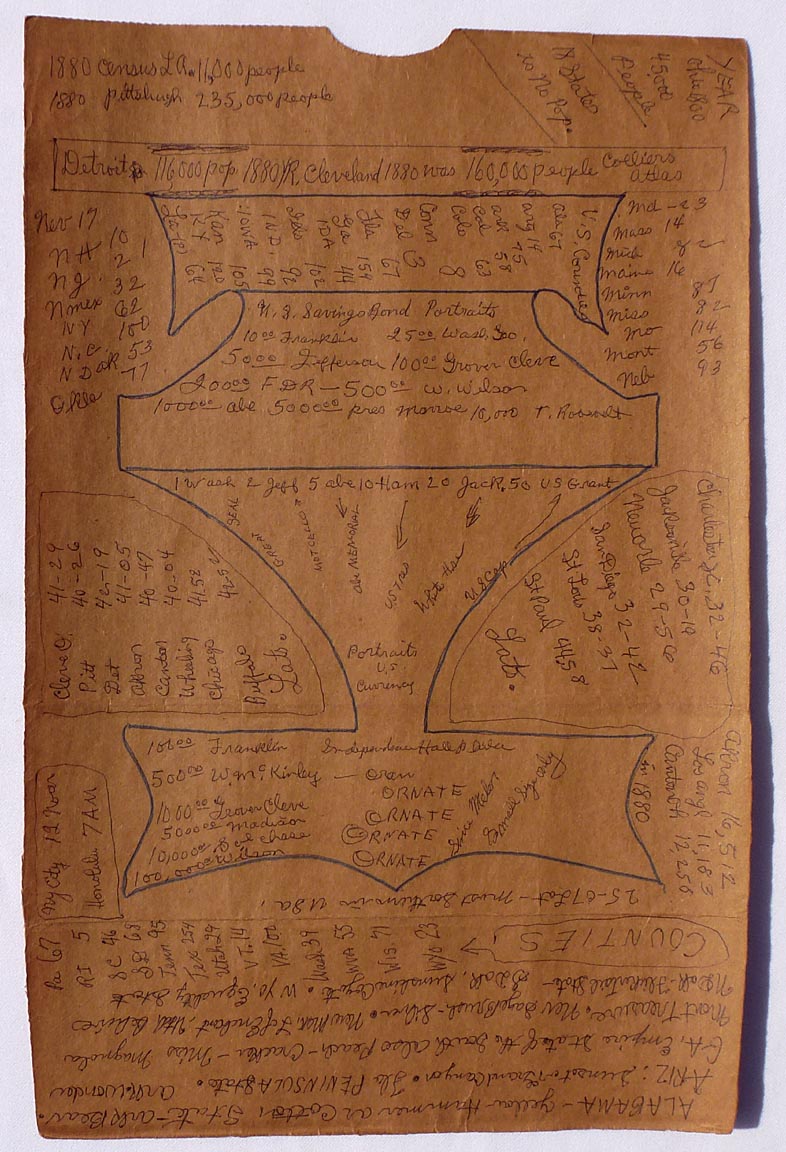 1880 Census L.A. 11,000 people
1880 Pittsburgh 235,000 people
18 States
no No Pop.
YEAR
Chi 1860
45000
people
Detroit 116,000 pop 1880 YR, Cleveland 1880 was 160,000 people Colliers
atlas
Nev 17
NH 10
NJ. 21
Nmex 32
NY 62
N.C. 100
N Dak 53
Okla 77
Ky 120
Kan 105
IOWA 99
IND. 92
Ills 102
IDA 44
Ga 159
Fla 67
Del 3
Conn 8
Colo 63
Cal 58
ark 75
ariz 14
ala 67
U.S. Counties
Md - 23
Mass 14
Mich
Maine 16
Minn 87
Miss 82
Mo 114
Mont 56
Neb 93
U.S. Savings Bond Portraits
10.00 Franklin 25.00 Wash. Geo.
50.00 Jefferson 100.00 Grover Cleve
200.00 FDR - 500.00 W. Wilson
1000.00 abe 5000.00 pres monroe 10,000 T. Roosevelt
1 Wash 2 Jeff 5 abe 10 Ham 20 Jack. 50 US Grant
GREAT SEAL
abe MEMORIAL
US Tres
White Hse
US Cap
Portraits
U.S.
Currency
Cleve O. 41-29
Pitt 40-26
Det 42-19
akron 41-05
Canton 40-47
Wheeling 40-04
Chicago 41 52
Buffalo 42 52
Lats.
Charleston SC. 32-46
Jacksonville 30-19
New Orle 29-56
San Diego 32-42
St Louis 38-37
St Paul 44 58
Lats.
100.00 Franklin Independence Hall Phila
500.00 W. McKinley - Oran
ORNATE
1000.00 Grover Cleve
5000.00 Madison ORNATE
10,000.00 Sal chase ORNATE
100,000.00 Wilson ORNATE
in 1880
Akron 16,512
Los angl 11,183
Canton Oh 12,258
Ny City 12 Noon
Honolulu 7AM
25-07 Lat - most Southern in USA.
COUNTIES
Pa 67
RI 5
SC 46
SD 68
Tenn 95
Tex 254
Utah 29
VT. 14
VA. 100
Wash 39
WVA 55
WIS 71
WYO 23
N Dak Flickertail State - S Dak, Sunshine Coyote. Wyo, Equality State
Mont Treasure. Nev Sage Brush - Silver. New Mex. L of Enchant, Utah Beehive
GA, Empire State of the South also Peach - Cracker - Miss Magnolia
ARIZ: Sunset or Grand Canyon. Fla PENINSULA State. Ark Wonder
ALABAMA - yellow Hammer or Cotton State - Ark Bear.